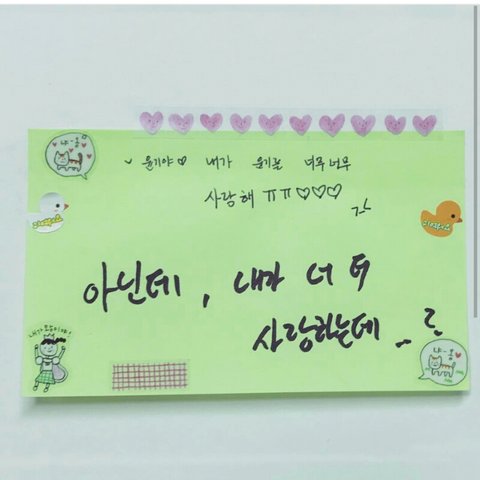 냐-옹
윤기야♡ 내가 윤기를 너무너무
사랑해 ㅠㅠ♡♡♡
아닌데, 내가 너 더
사랑하는데
냐-옹